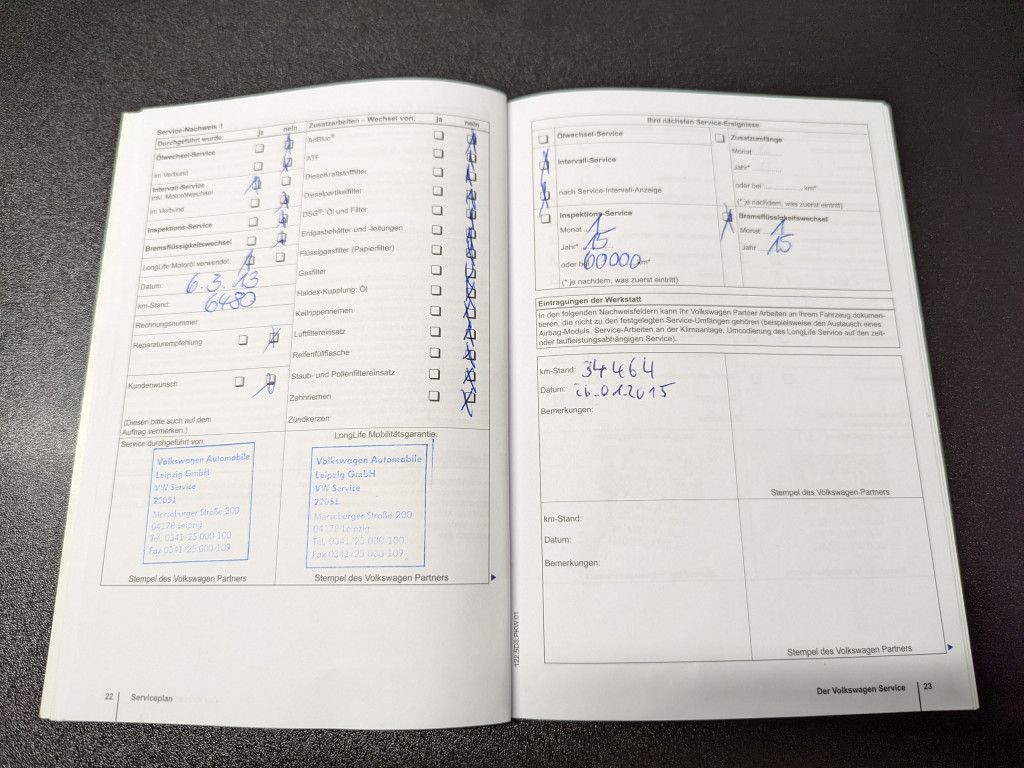 Service-Nachweis 1
Durchgeführt wurde: Ja nein
Ölwechsel-Service
im Verbund
Intervall-Service
inkl. Motorölwechsel
im Verbund
Inspektions-Service
Bremsflüssigkeitswechsel
LongLife Motoröl verwendet
Datum: 6.3.13
km-Stand: 6480
Rechnungsnummer:
Reparaturempfehlung
Kundenwunsch
(Diesen bitte auch auf dem
Auftrag vermerken.)
Zusatzarbeiten – Wechsel von: Ja nein
AdBlue®
ATF
Dieselkraftstofffilter
Dieselpartikelfilter
DSG®: Öl und Filter
Erdgasbehälter und -leitungen
Flüssiggasfilter (Papierfilter)
Gasfilter
Haldex-Kupplung: Öl
Keilrippenriemen
Luftfiltereinsatz
Reifenfüllflasche
Staub- und Pollenfiltereinsatz
Zahnriemen
Zündkerzen
Service durchgeführt von:
Volkswagen Automobile
Leipzig GmbH
VW Service
22051
Merseburger Straße 200
04178 Leipzig
Tel. 0341/25 000-100
Fax 0341/25 000-109
Stempel des Volkswagen Partners
LongLife Mobilitätsgarantie:
Volkswagen Automobile
Leipzig GmbH
VW Service
22051
Merseburger Straße 200
04178 Leipzig
Tel. 0341/25 000-100
Fax 0341/25 000-109
Stempel des Volkswagen Partners
22 Serviceplan
122.5D3.PKW.01
Ihre nächsten Service-Ereignisse
Ölwechsel-Service
Intervall-Service
nach Service-Intervall-Anzeige
Zusatzumfänge
Monat
Jahr*
oder bei km*
(* je nachdem, was zuerst eintritt)
Inspektions-Service
Monat 1
Jahr* 15
oder bei 60000 km*
(* je nachdem, was zuerst eintritt)
Bremsflüssigkeitswechsel
Monat 1
Jahr 15
Eintragungen der Werkstatt
In den folgenden Nachweisfeldern kann Ihr Volkswagen Partner Arbeiten an Ihrem Fahrzeug dokumen-
tieren, die nicht zu den festgelegten Service-Umfängen gehören (beispielsweise den Austausch eines
Airbag-Moduls, Service-Arbeiten an der Klimaanlage, Umcodierung des LongLife Service auf den zeit-
oder laufleistungsabhängigen Service).
km-Stand: 34464
Datum: 26.01.2015
Bemerkungen:
Stempel des Volkswagen Partners
km-Stand:
Datum:
Bemerkungen:
Stempel des Volkswagen Partners
Der Volkswagen Service 23